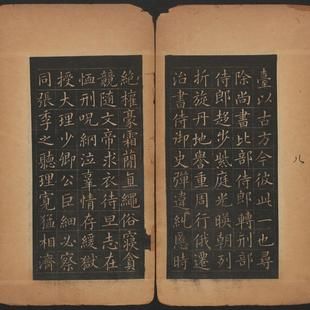 臺以古方今彼此一也尋
除尚書比部侍郎轉刑部
侍郎超步紫庭光暎朝列
折旋丹地譽重周行俄遷
治書侍御史彈違糺慝時
絶權豪霜簡直繩俗寢貪
競隨文帝求衣待旦志在
恤刑呪網泣辜情存緩獄
授大理少卿公巨細必察
同張季之聽理寬猛相濟
八